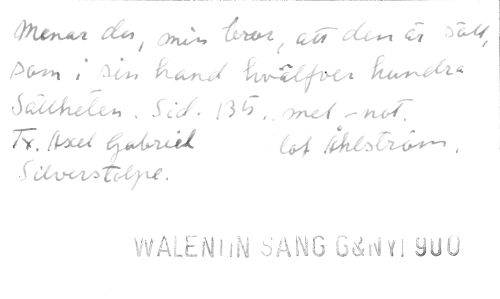 Menar du, min bror, att den är säll,
som i sin hand hvälfver hundra
Sällheten. Sid. 135. mel-not.
Tx. Axel Gabriel Olof Åhlström.
Silverstolpe.
WALENTIN SANG G&NYT 900